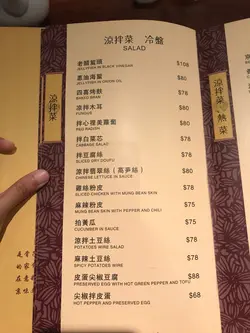 涼拌菜 冷盤
SALAD
老醋蜇頭 $108
JELLYFISH IN BLACK VINEGAR
蔥油海蜇 $80
JELLYFISH IN ONION OIL
四喜烤麩 $78
BAKED BRAN
涼拌木耳 $80
FUNGUS
拌心裡美蘿蔔 $80
RED RADISH
拌白菜芯 $78
CABBAGE SALAD
拌豆腐絲 $78
SLICED DRY DOUFU
涼拌翡翠絲（萵筍絲） $80
CHINESE LETTUCE IN SAUCE
雞絲粉皮 $78
SLICED CHICKEN WITH MUNG BEAN SKIN
麻辣粉皮 $75
MUNG BEAN SKIN WITH PEPPER AND CHILI
拍黃瓜 $75
CUCUMBER IN SAUCE
涼拌土豆絲 $78
POTATOES WIRE SALAD
麻辣土豆絲 $78
SPICY POTATOES WIRE
皮蛋尖椒豆腐 $88
PRESERVED EGG WITH HOT GREEN PEPPER AND TOFU
尖椒拌皮蛋 $68
HOT PEPPER AND PRESERVED EGG
涼拌菜
涼拌菜 熱菜